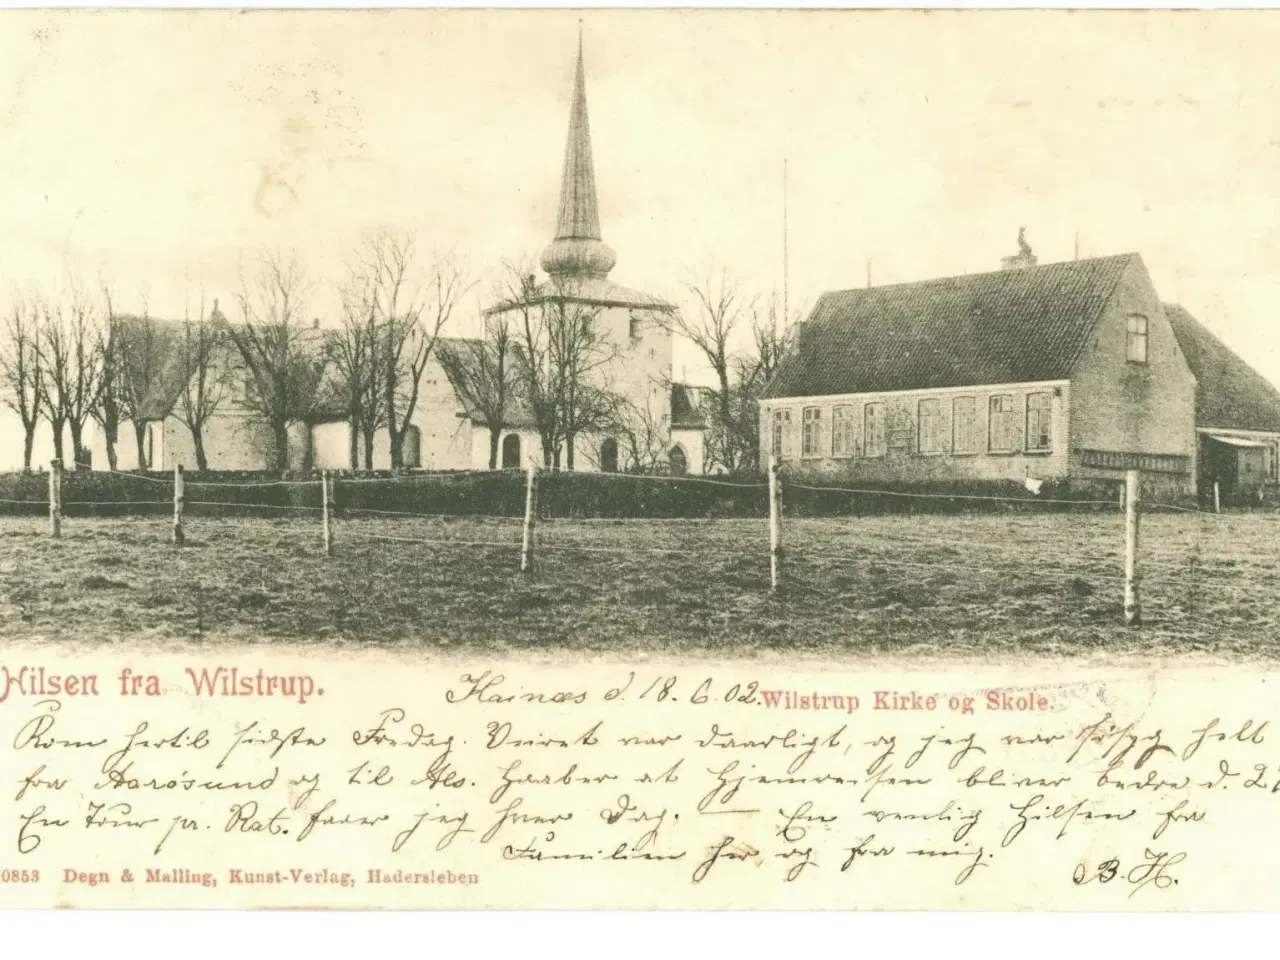 Hilsen fra Wilstrup.
Hainæs d. 18. 6. 02.
Wilstrup Kirke og Skole.
Kom hertil sidste Fredag. Veiret var daarligt, og jeg var søsyg helt
fra Aarøsund og til Als. Haaber at Hjemreisen bliver bedre d.
En Tour pr. Rat. faaer jeg hver Dag. — En venlig Hilsen fra
Familien her og fra mig.
B. H.
0853 Degn & Malling, Kunst-Verlag, Hadersleben